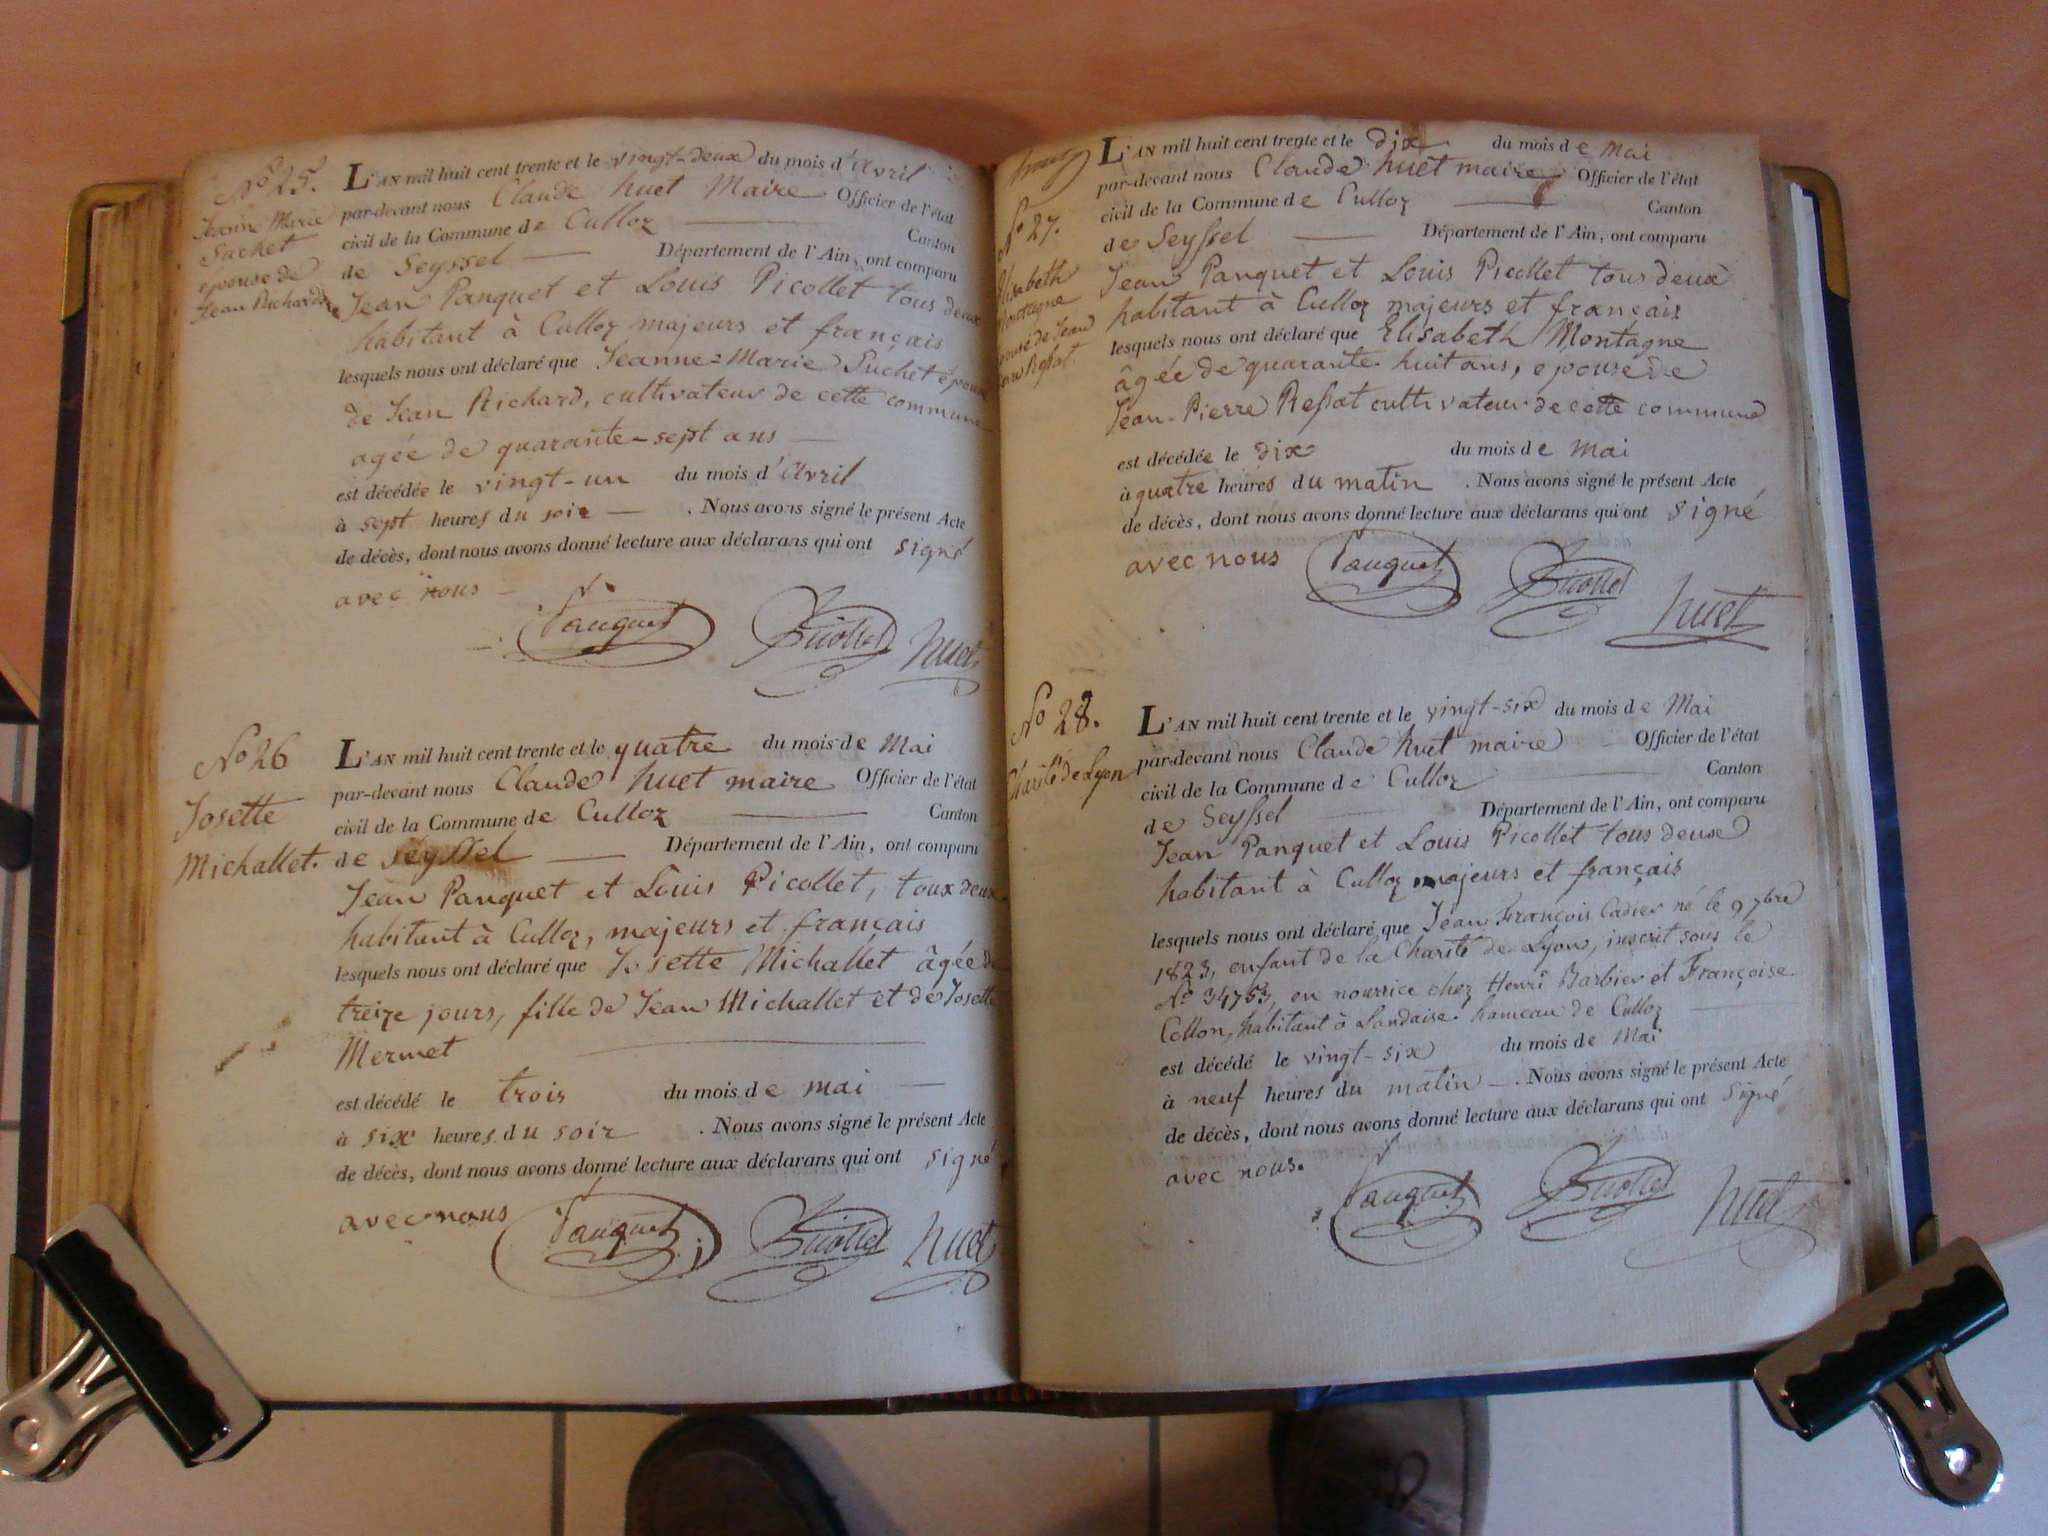 No 25.
Jeanne Marie
Suchet
épouse de
Jean Richard
L'AN mil huit cent trente et le vingt-deux du mois d'avril
par-devant nous Claude huet Maire Officier de l'état
civil de la Commune de Culloz Canton
de Seyssel Département de l'Ain, ont comparu
Jean Panquet et Louis Picollet tous deux
habitant à Culloz majeurs et français
lesquels nous ont déclaré que Jeanne-Marie Suchet épouse
de Jean Richard, cultivateur de cette commune
agée de quarante-sept ans
est décédée le vingt-un du mois d'avril
à sept heures du soir . Nous avons signé le présent Acte
de décès, dont nous avons donné lecture aux déclarans qui ont signé
avec nous
Panquet Picollet huet
No 26
Josette
Michallet.
L'AN mil huit cent trente et le quatre du mois de Mai
par-devant nous Claude huet maire Officier de l'état
civil de la Commune de Culloz Canton
de Seyssel Département de l'Ain, ont comparu
Jean Panquet et Louis Picollet, toux deux
habitant à Culloz, majeurs et français
lesquels nous ont déclaré que Josette Michallet âgée de
treize jours, fille de Jean Michallet et de Josette
Mermet
est décédé le trois du mois de mai
à six heures du soir . Nous avons signé le présent Acte
de décès, dont nous avons donné lecture aux déclarans qui ont signé
avec nous
Panquet Picollet huet
huet
No 27.
Elisabeth
Montagne
épouse de Jean
Pierre Ressat.
L'AN mil huit cent trente et le dix du mois de Mai
par-devant nous Claude huet maire Officier de l'état
civil de la Commune de Culloz Canton
de Seyssel Département de l'Ain, ont comparu
Jean Panquet et Louis Picollet tous deux
habitant à Culloz majeurs et français
lesquels nous ont déclaré que Elisabeth Montagne
âgée de quarante-huit ans, epouse de
Jean-Pierre Ressat cultivateur de cette commune
est décédée le dix du mois de Mai
à quatre heures du matin . Nous avons signé le présent Acte
de décès, dont nous avons donné lecture aux déclarans qui ont signé
avec nous Panquet Picollet huet
No 28.
Charité de Lyon
L'AN mil huit cent trente et le vingt-six du mois de Mai
par-devant nous Claude huet maire Officier de l'état
civil de la Commune de Culloz Canton
de Seyssel Département de l'Ain, ont comparu
Jean Panquet et Louis Picollet tous deux
habitant à Culloz majeurs et français
lesquels nous ont déclaré que Jean François Cadier né le 9 7bre
1823, enfant de la Charité de Lyon, inscrit sous le
No 34753, en nourrice chez Henri Barbier et Françoise
Collon, habitant à Landaise hameau de Culloz
est décédé le vingt-six du mois de Mai
à neuf heures du matin . Nous avons signé le présent Acte
de décès, dont nous avons donné lecture aux déclarans qui ont signé
avec nous.
Panquet Picollet huet